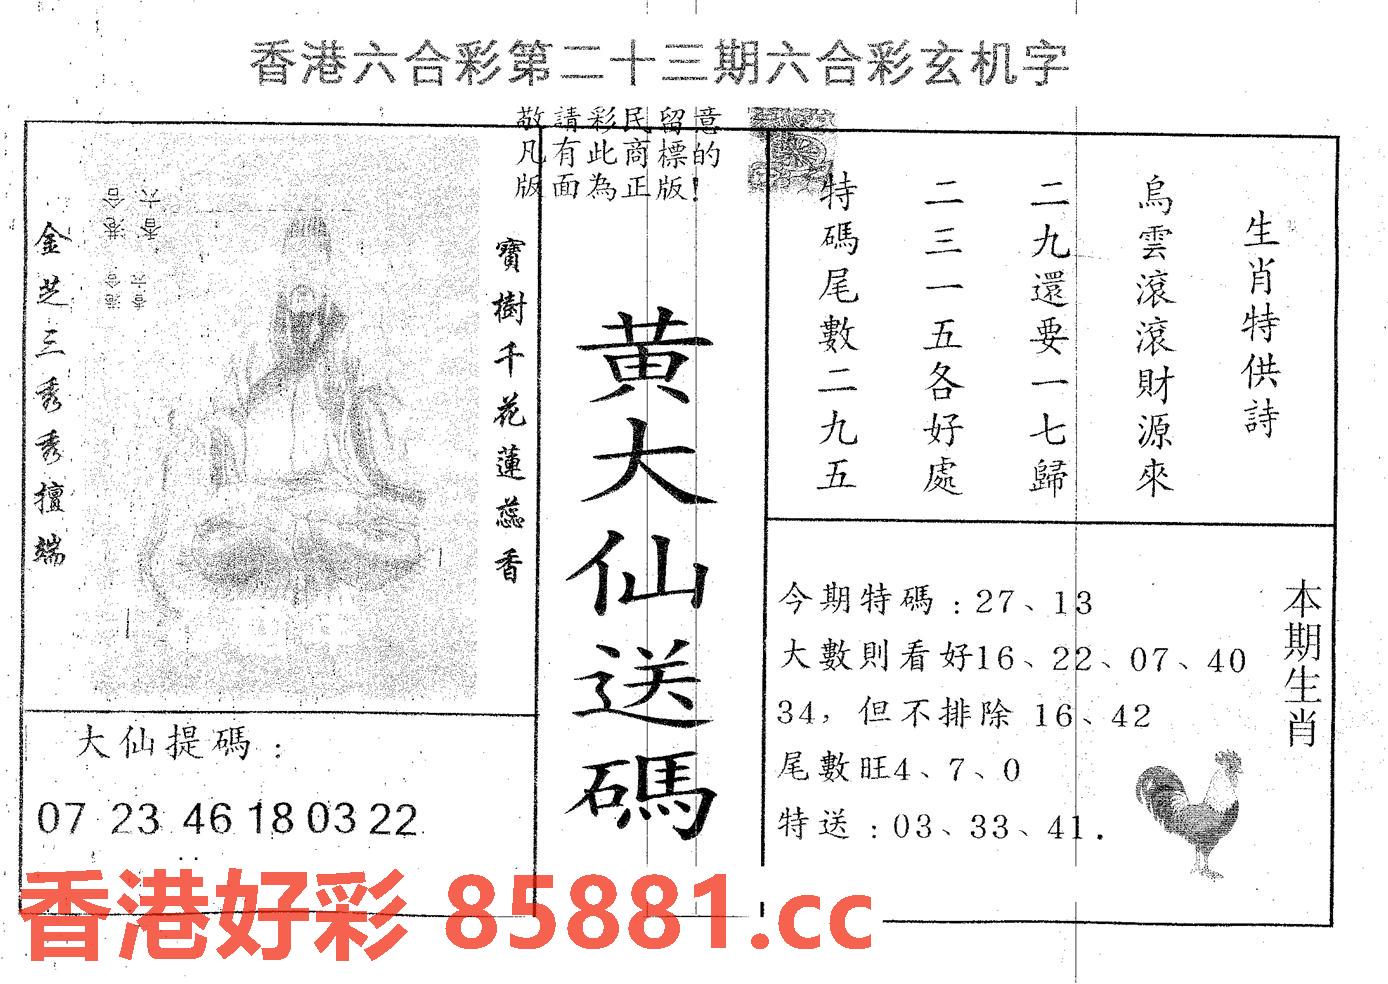 香港六合彩第二十三期六合彩玄机字
敬請彩民留意
凡有此商標的
版面為正版!
金芝三秀秀擅端
寶樹千花蓮蕊香
黄大仙送碼
生肖特供詩
烏雲滾滾財源來
二九還要一七歸
二三一五各好處
特碼尾數二九五
大仙提碼：
07 23 46 18 03 22
本期生肖
今期特碼：27、13
大數則看好16、22、07、40
34，但不排除 16、42
尾數旺4、7、0
特送：03、33、41.
香港好彩 85881.cc